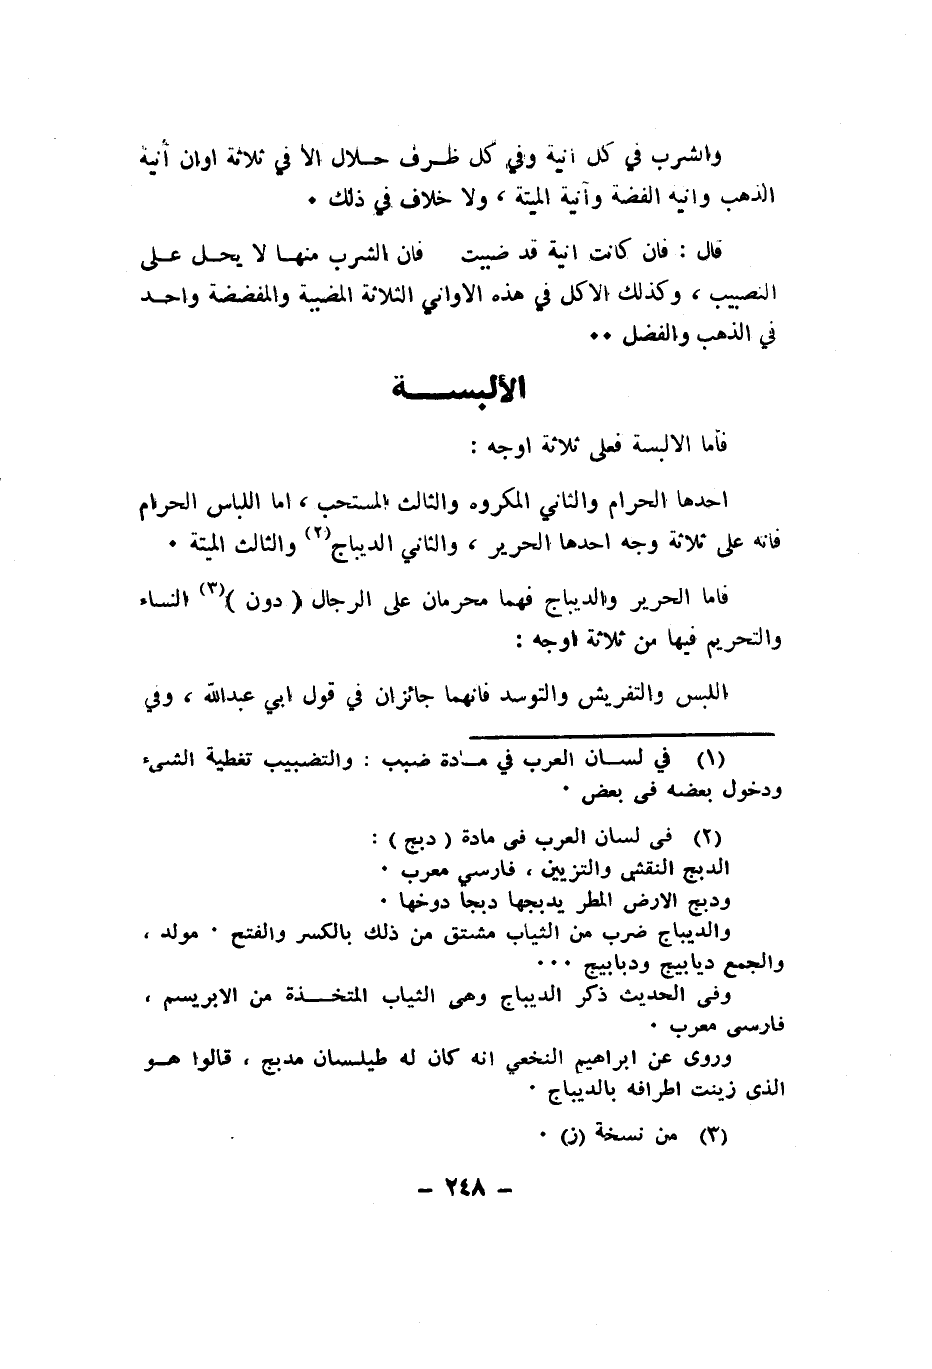 واشرب في كل آنية وفي كل ظرف حلال الا في ثلاثة اوان أنية
الذهب وانيه الفضة وآنية الميتة ، ولا خلاف في ذلك .
قال : فان كانت انية قد ضببت فان الشرب منها لا يحل على
النصبيب ، وكذلك الاكل في هذه الاواني الثلاثة المضببة والمفضضة واحد
في الذهب والفضل ..
الألبسة
فأما الالبسة فعلى ثلاثة اوجه :
احدها الحرام والثاني المكروه والثالث المستحب ، اما اللباس الحرام
فانه على ثلاثة وجه احدها الحرير ، والثاني الديباج(٢) والثالث الميتة .
فاما الحرير والديباج فهما محرمان على الرجال ( دون )(٣) النساء
والتحريم فيها من ثلاثة اوجه :
اللبس والتفريش والتوسد فانهما جائزان في قول ابي عبدالله ، وفي
(١) في لسان العرب في مادة ضبب : والتضبيب تغطية الشىء
ودخول بعضه فى بعض .
(٢) فى لسان العرب فى مادة ( دبج ) :
الدبج النقش والتزيين ، فارسي معرب .
ودبج الارض المطر يدبجها دبجا دوخها .
والديباج ضرب من الثياب مشتق من ذلك بالكسر والفتح . مولد ،
والجمع ديابيج ودبابيج ...
وفى الحديث ذكر الديباج وهى الثياب المتخذة من الابريسم ،
فارسى معرب .
وروى عن ابراهيم النخعي انه كان له طيلسان مدبج ، قالوا هو
الذى زينت اطرافه بالديباج .
(٣) من نسخة (ز) .
– ٢٤٨ –